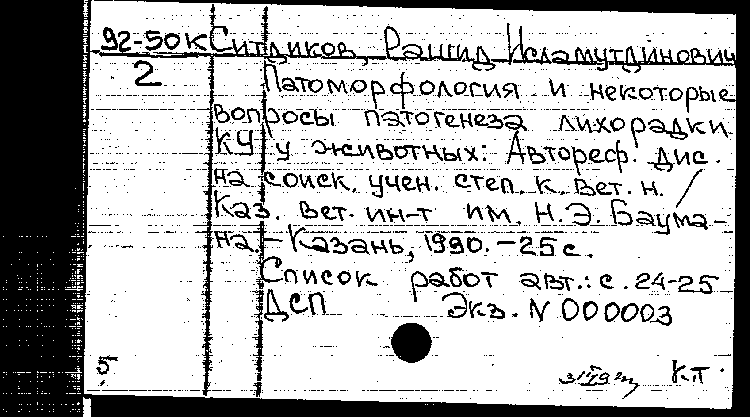 92-50К Ситдиков, Рашид Исламутдинович
2 Патоморфология и некоторые
вопросы патогенеза лихорадки
КУ у животных: Автореф. дис.
на соиск. учен. степ. к. вет. н. /
Каз. вет. ин-т им. Н.Э. Баума-
на. – Казань, 1990. – 25 с.
Список работ авт.: с. 24-25
ДСП Экз. N 000003
5 КТ